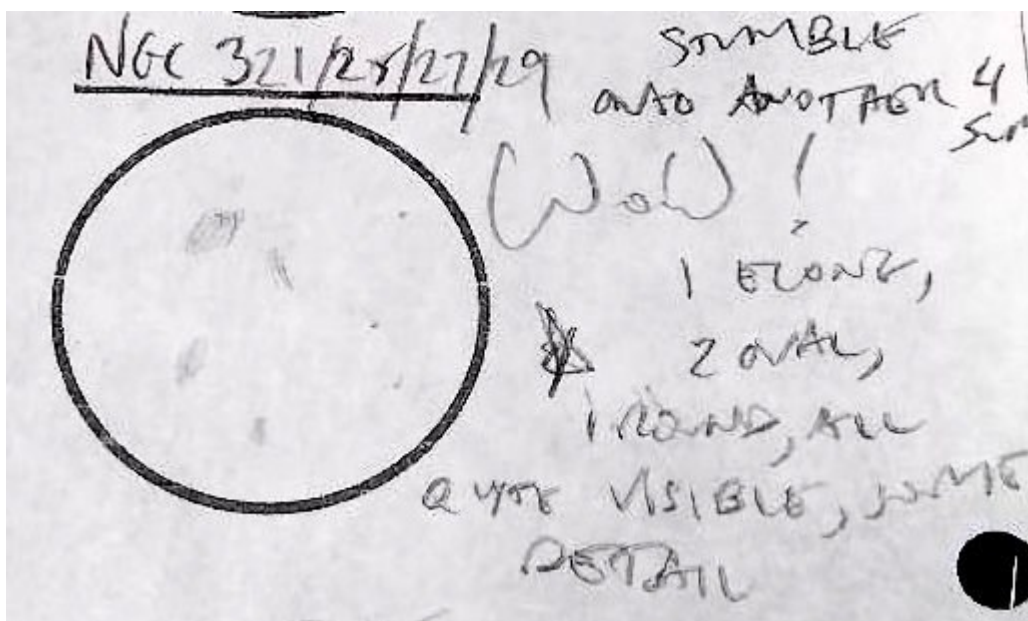 NGC 321/25/27/29
STUMBLE
ONTO ANOTHER 4
SUM
WOW!
1 ELONG,
2 OVAL,
1 ROUND, ALL
QUITE VISIBLE, SOME
DETAIL